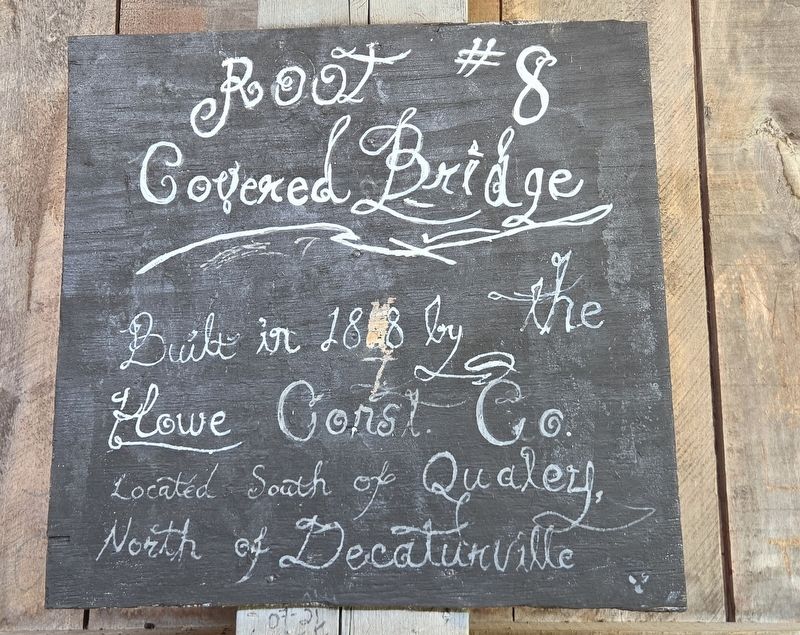 Root #8
Covered Bridge
Built in by the
Howe Const. Co.
Located South of Qualey,
North of Decaturville